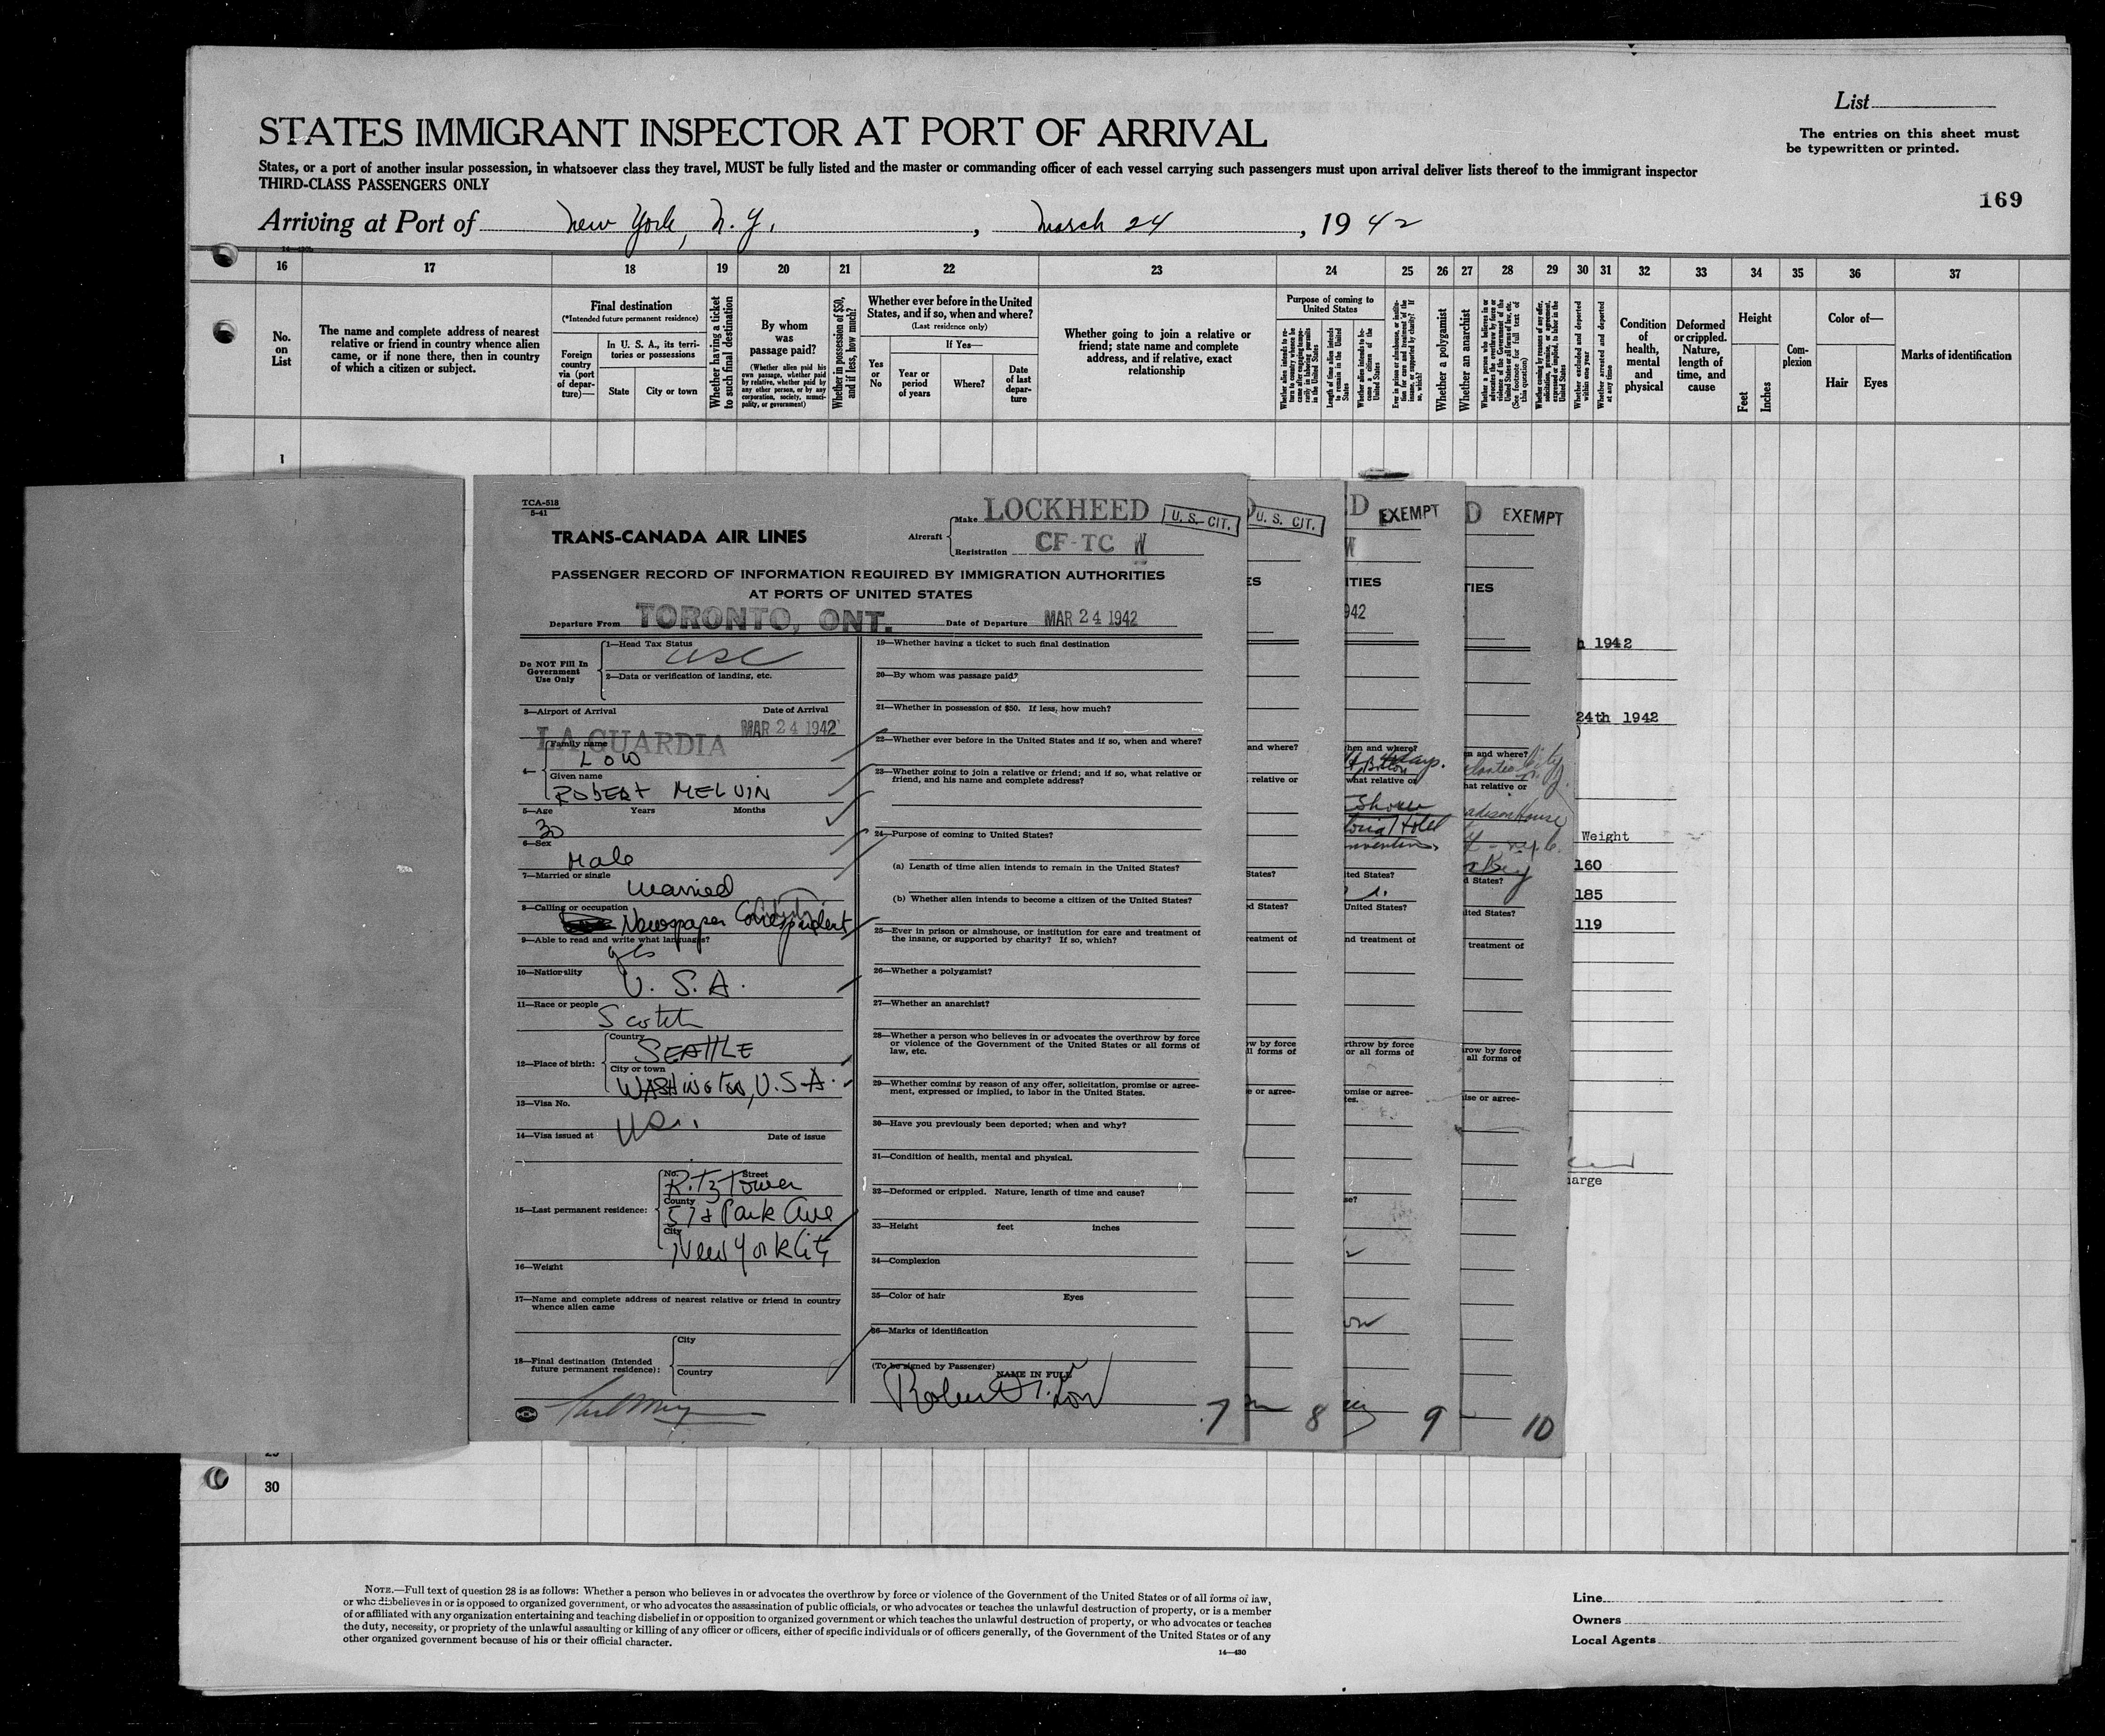 List
STATES IMMIGRANT INSPECTOR AT PORT OF ARRIVAL
The entries on this sheet must
be typewritten or printed.
States, or a port of another insular possession, in whatsoever class they travel, MUST be fully listed and the master or commanding officer of each vessel carrying such passengers must upon arrival deliver lists thereof to the immigrant inspector
THIRD-CLASS PASSENGERS ONLY
169
Arriving at Port of New York, N.Y., March 24, 1942
16 17 18 19 20 21 22 23 24 25 26 27 28 29 30 31 32 33 34 35 36 37
No. on List
The name and complete address of nearest
relative or friend in country whence alien
came, or if none there, then in country
of which a citizen or subject.
Final destination
(*Intended future permanent residence)
Foreign country via (port of departure)—
In U. S. A., its territories or possessions
State
City or town
Whether having a ticket to such final destination
By whom was passage paid?
(Whether alien paid his own passage, whether paid by relative, whether paid by any other person, or by any corporation, society, municipality, or government)
Whether in possession of $50, and if less, how much?
Whether ever before in the United
States, and if so, when and where?
(Last residence only)
Yes or No
If Yes—
Year or period of years
Where?
Date of last departure
Whether going to join a relative or
friend; state name and complete
address, and if relative, exact
relationship
Purpose of coming to United States
Length of time alien intends to remain in the United States
Whether alien intends to become a citizen of the United States
Whether a polygamist
Whether an anarchist
Whether arrested and deported at any time
Condition of health, mental and physical
Deformed or crippled. Nature, length of time, and cause
Height
Feet
Inches
Complexion
Color of—
Hair
Eyes
Marks of identification
1
TCA-518
5-41
TRANS-CANADA AIR LINES
Aircraft
Make LOCKHEED
U. S. CIT.
Registration CF-TC W
PASSENGER RECORD OF INFORMATION REQUIRED BY IMMIGRATION AUTHORITIES
AT PORTS OF UNITED STATES
Departure From TORONTO, ONT. Date of Departure MAR 24 1942
Do NOT Fill In
Government
Use Only
1—Head Tax Status
USC
2—Data or verification of landing, etc.
3—Airport of Arrival Date of Arrival
LA GUARDIA MAR 24 1942
4— Family name
LOW
Given name
ROBERT MELVIN
5—Age Years Months
30
6—Sex
Male
7—Married or single
Married
8—Calling or occupation
Newspaper Correspondent
9—Able to read and write what language?
yes
10—Nationality
U. S. A.
11—Race or people
Scotch
12—Place of birth:
Country
SEATTLE
City or town
WASHINGTON, U.S.A.
13—Visa No.
14—Visa issued at Date of issue
15—Last permanent residence:
No. Street
Ritz Tower
County
57 & Park Ave
City
New York City
16—Weight
17—Name and complete address of nearest relative or friend in country
whence alien came
18—Final destination (Intended
future permanent residence):
City
Country
19—Whether having a ticket to such final destination
20—By whom was passage paid?
21—Whether in possession of $50. If less, how much?
22—Whether ever before in the United States and if so, when and where?
23—Whether going to join a relative or friend; and if so, what relative or
friend, and his name and complete address?
24—Purpose of coming to United States?
(a) Length of time alien intends to remain in the United States?
(b) Whether alien intends to become a citizen of the United States?
25—Ever in prison or almshouse, or institution for care and treatment of
the insane, or supported by charity? If so, which?
26—Whether a polygamist?
27—Whether an anarchist?
28—Whether a person who believes in or advocates the overthrow by force
or violence of the Government of the United States or all forms of
law, etc.
29—Whether coming by reason of any offer, solicitation, promise or agree-
ment, expressed or implied, to labor in the United States.
30—Have you previously been deported; when and why?
31—Condition of health, mental and physical.
32—Deformed or crippled. Nature, length of time and cause?
33—Height feet inches
34—Complexion
35—Color of hair Eyes
36—Marks of identification
(To be signed by Passenger)
NAME IN FULL
7
U. S. CIT.
and where?
relative or
8
EXEMPT
1942
Hotel
9
EXEMPT
10
1942
24th 1942
Weight
160
185
119
30
NOTE.—Full text of question 28 is as follows: Whether a person who believes in or advocates the overthrow by force or violence of the Government of the United States or of all forms of law,
or who disbelieves in or is opposed to organized government, or who advocates the assassination of public officials, or who advocates or teaches the unlawful destruction of property, or is a member
of or affiliated with any organization entertaining and teaching disbelief in or opposition to organized government or which teaches the unlawful destruction of property, or who advocates or teaches
the duty, necessity, or propriety of the unlawful assaulting or killing of any officer or officers, either of specific individuals or of officers generally, of the Government of the United States or of any
other organized government because of his or their official character.
14—430
Line
Owners
Local Agents